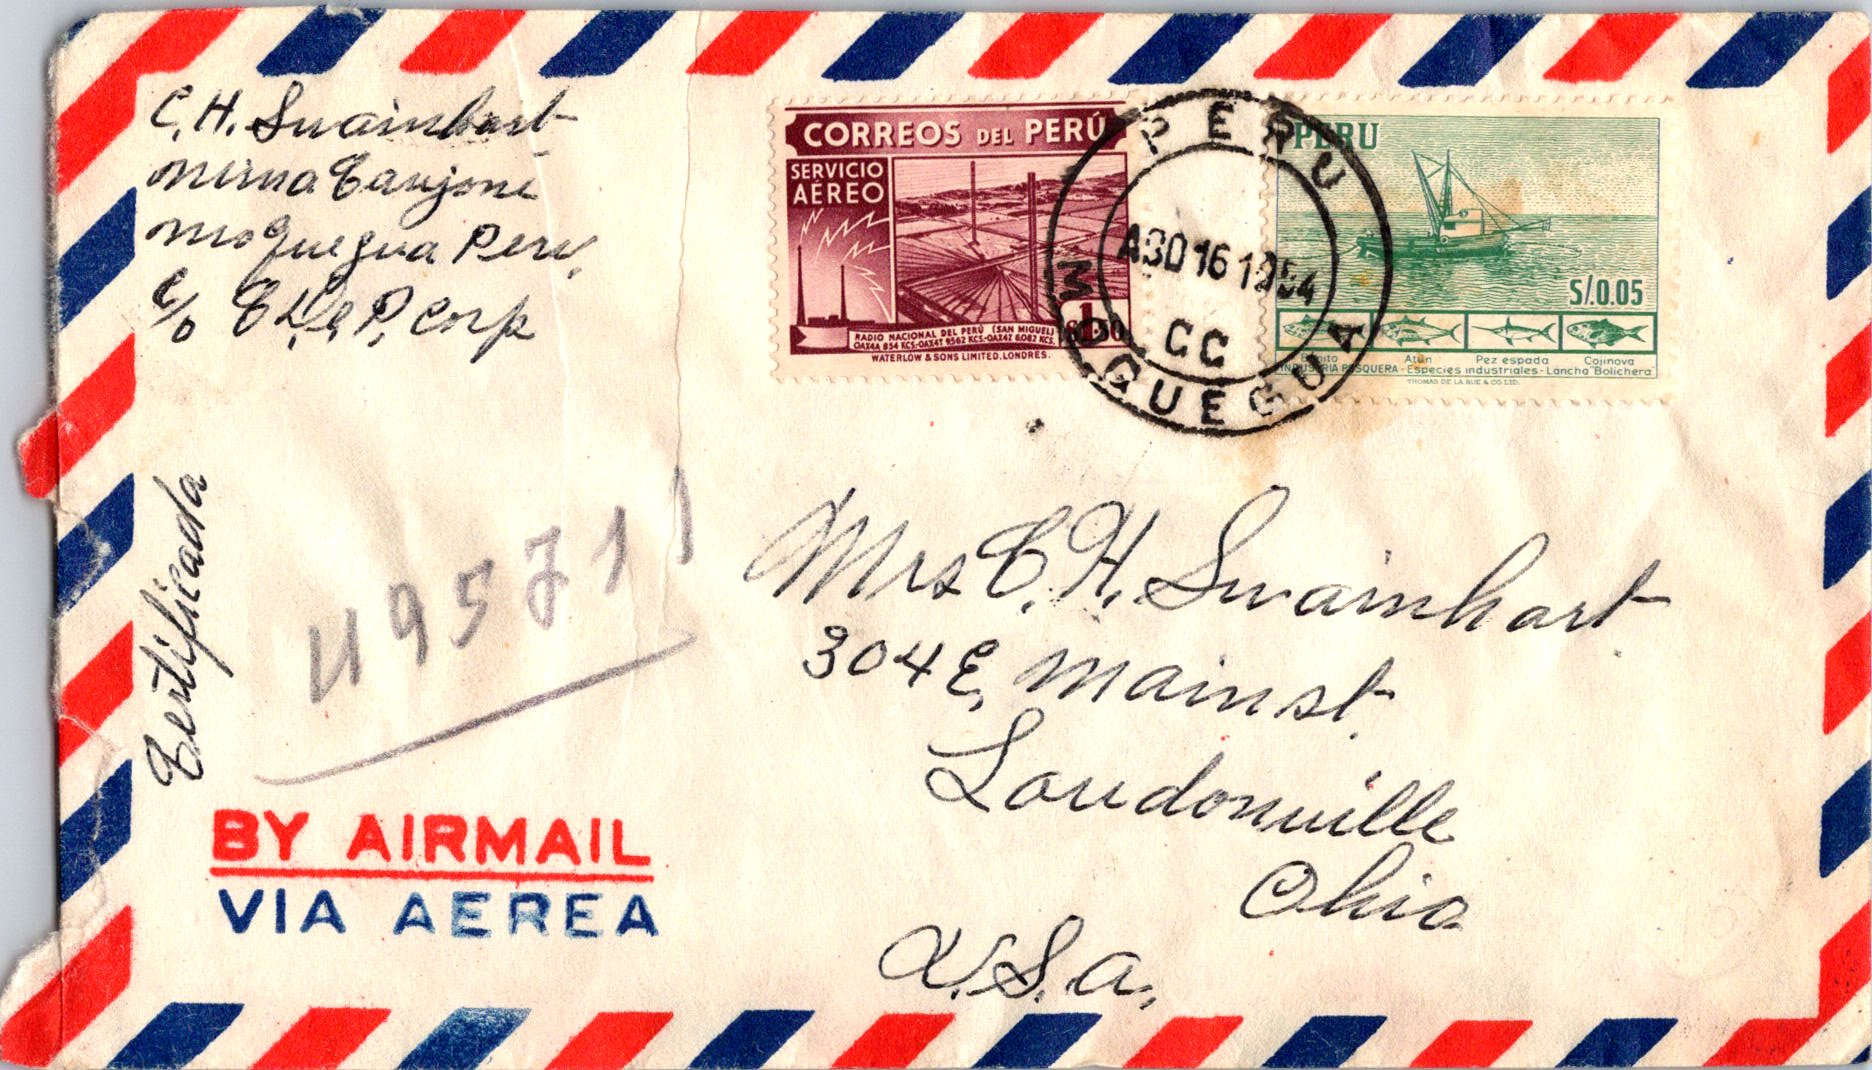 C. H. Swainhart
Moquegua Peru,
c/o Corp
CORREOS DEL PERÚ
SERVICIO
AÉREO
RADIO NACIONAL DEL PERÚ (SAN MIGUEL)
OAX4A 854 KCS.-OAX4T 9562 KCS.-OAX4Z 6082 KCS.
S/.1.50
WATERLOW & SONS LIMITED. LONDRES.
PERU
AGO 16 1954
CC
MOQUEGUA
PERU
S/.0.05
Bonito Atún Pez espada Cojinova
INDUSTRIA PESQUERA - Especies industriales - Lancha "Bolichera"
THOMAS DE LA RUE & CO. LTD.
Certificada
495711
Mrs C. H. Swainhart
304 E, Main st.
Loudonville
Ohio
U.S.A.,
BY AIRMAIL
VIA AEREA